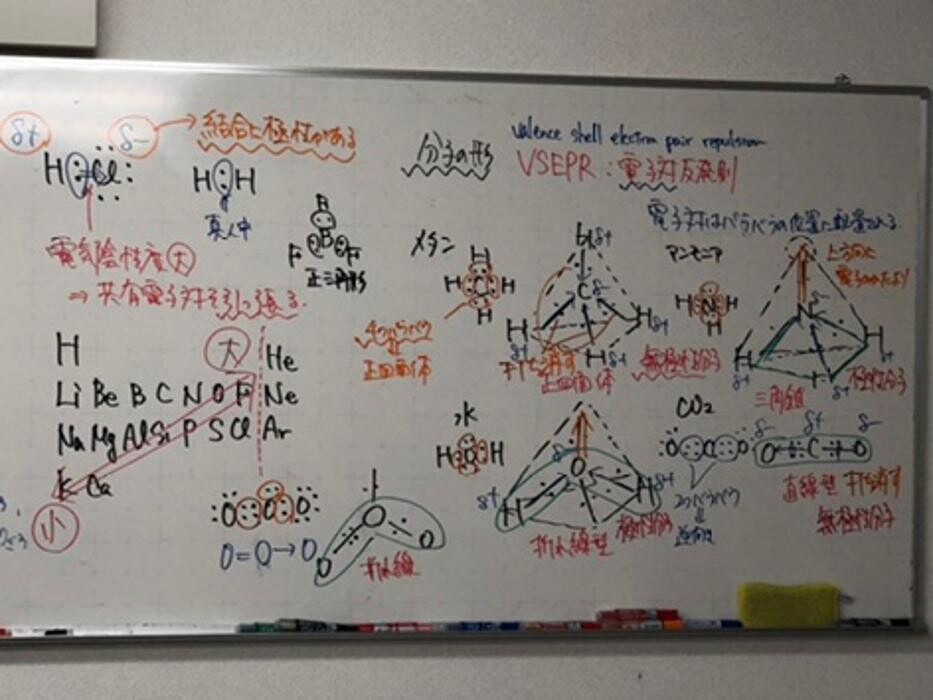 δ+ δ- → 結合に極性がある
H:Cl:
H:H
真人中
電気陰性度大
⇒ 共有電子対を引っ張る。
分子の形
valence shell electron pair repulsion
VSEPR:電子対反発則
電子対はバラバラの位置に配置される.
B
F B F
正三角形
メタン
H
H C H
H
4つバラバラ
正四面体
H δ+
C δ-
H δ+
H δ+
H δ+
打ち消す
正四面体
無極性分子
アンモニア
H N H
H
上方向に
電子のかたより
N δ-
H δ+
H δ+
H δ+
三角錐
極性分子
H 大 He
Li Be B C N O F Ne
Na Mg Al Si P S Cl Ar
K Ca
小
O O O
O=O→O
O
O O
折れ線
水
H O H
δ-
O
δ+ H H δ+
折れ線型
極性分子
CO2
O C O
2つバラバラ
逆向き
δ- δ+ δ-
O C O
直線型 打ち消す
無極性分子